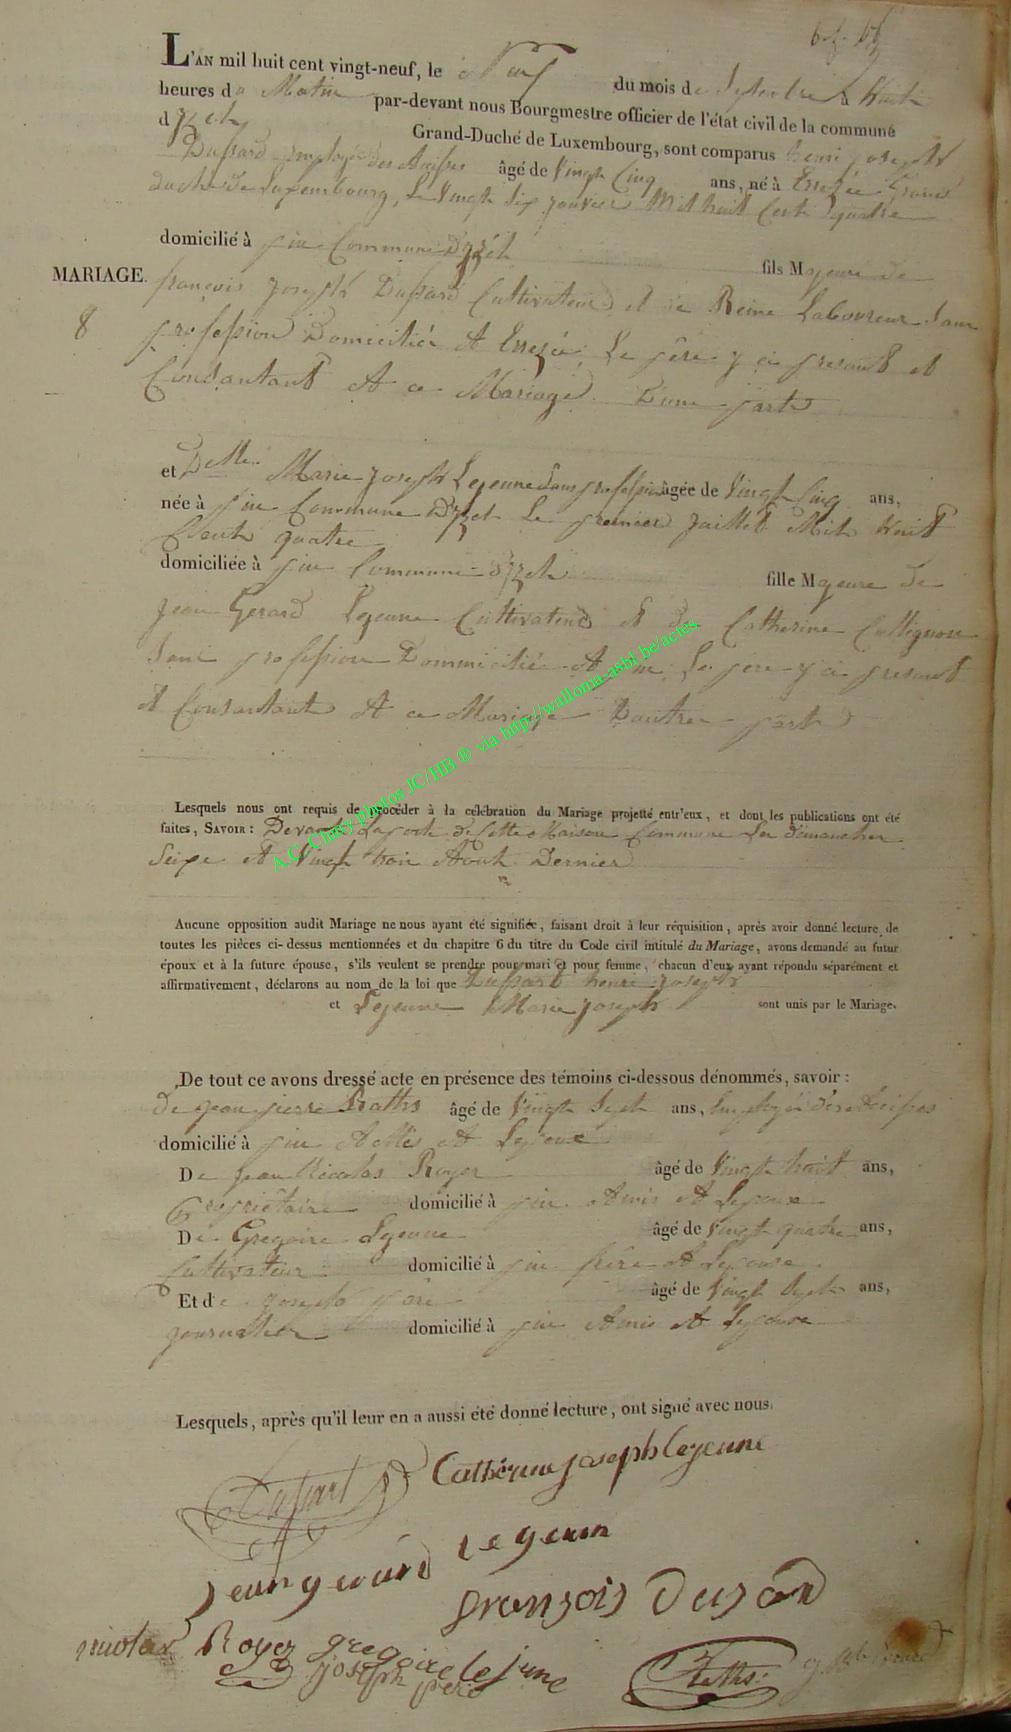 L'AN mil huit cent vingt-neuf, le Neuf du mois de Septembre à huit
heures du Matin par-devant nous Bourgmestre officier de l'état civil de la commune
d'Izel Grand-Duché de Luxembourg, sont comparus henri joseph
Dussard Employé des Accises âgé de Vingt Cinq ans, né à Erezée Grand
duché de Luxembourg, Le Vingt Six janvier Mil huit Cent quatre
domicilié à pin Commune D'izel fils Majeur de
MARIAGE.
françois Joseph Dussard Cultivateur et de Reine Laboureur Sans
8
profession Domicilié A Erezée Le père y ci present et
Consantant A ce Mariage D'une part
et Delle Marie Joseph Lejeune Sans profession âgée de Vingt Cinq ans,
née à pin Commune D'izel Le premier Juillet Mil huit
Cent quatre
domiciliée à pin Commune d'izel fille Majeure de
Jean Gerard Lejeune Cultivateur et de Catherine Collignon
Sans profession Dommicilié A pin Le père y ci present
et Consantant A ce Mariage Dautre part
Lesquels nous ont requis de procéder à la célébration du Mariage projetté entr'eux, et dont les publications ont été
faites, SAVOIR : Devant La porte de Cette Maison Commune Les dimanches
Seize et Vingt trois Aout Dernier
Aucune opposition audit Mariage ne nous ayant été signifiée, faisant droit à leur réquisition, après avoir donné lecture de
toutes les pièces ci-dessus mentionnées et du chapitre 6 du titre du Code civil intitulé du Mariage, avons demandé au futur
époux et à la future épouse, s'ils veulent se prendre pour mari et pour femme, chacun d'eux ayant répondu séparément et
affirmativement, déclarons au nom de la loi que Dussart henri joseph
et Lejeune Marie joseph sont unis par le Mariage.
De tout ce avons dressé acte en présence des témoins ci-dessous dénommés, savoir :
De jean pierre âgé de Vingt Sept ans, Employé des Accises
domicilié à pin Amis A Lepoux
De Jean Nicolas Royer âgé de Vingt huit ans,
Propriétaire domicilié à pin Amis A Lepoux
De Gregoire Lejeune âgé de Vingt quatre ans,
Cultivateur domicilié à pin frère A Lepouse
Et de Joseph père âgé de Vingt Sept ans,
journalier domicilié à pin Amis A Lepouse
Lesquels, après qu'il leur en a aussi été donné lecture, ont signé avec nous.
Dussart Catherine joseph Lejeune
Jean gerard Lejeun
François Dusard
nicolas Royer gregoire lejeune
joseph père
A.C. Chiny photos JC/HB ® via http://walloma-asbl.be/actes